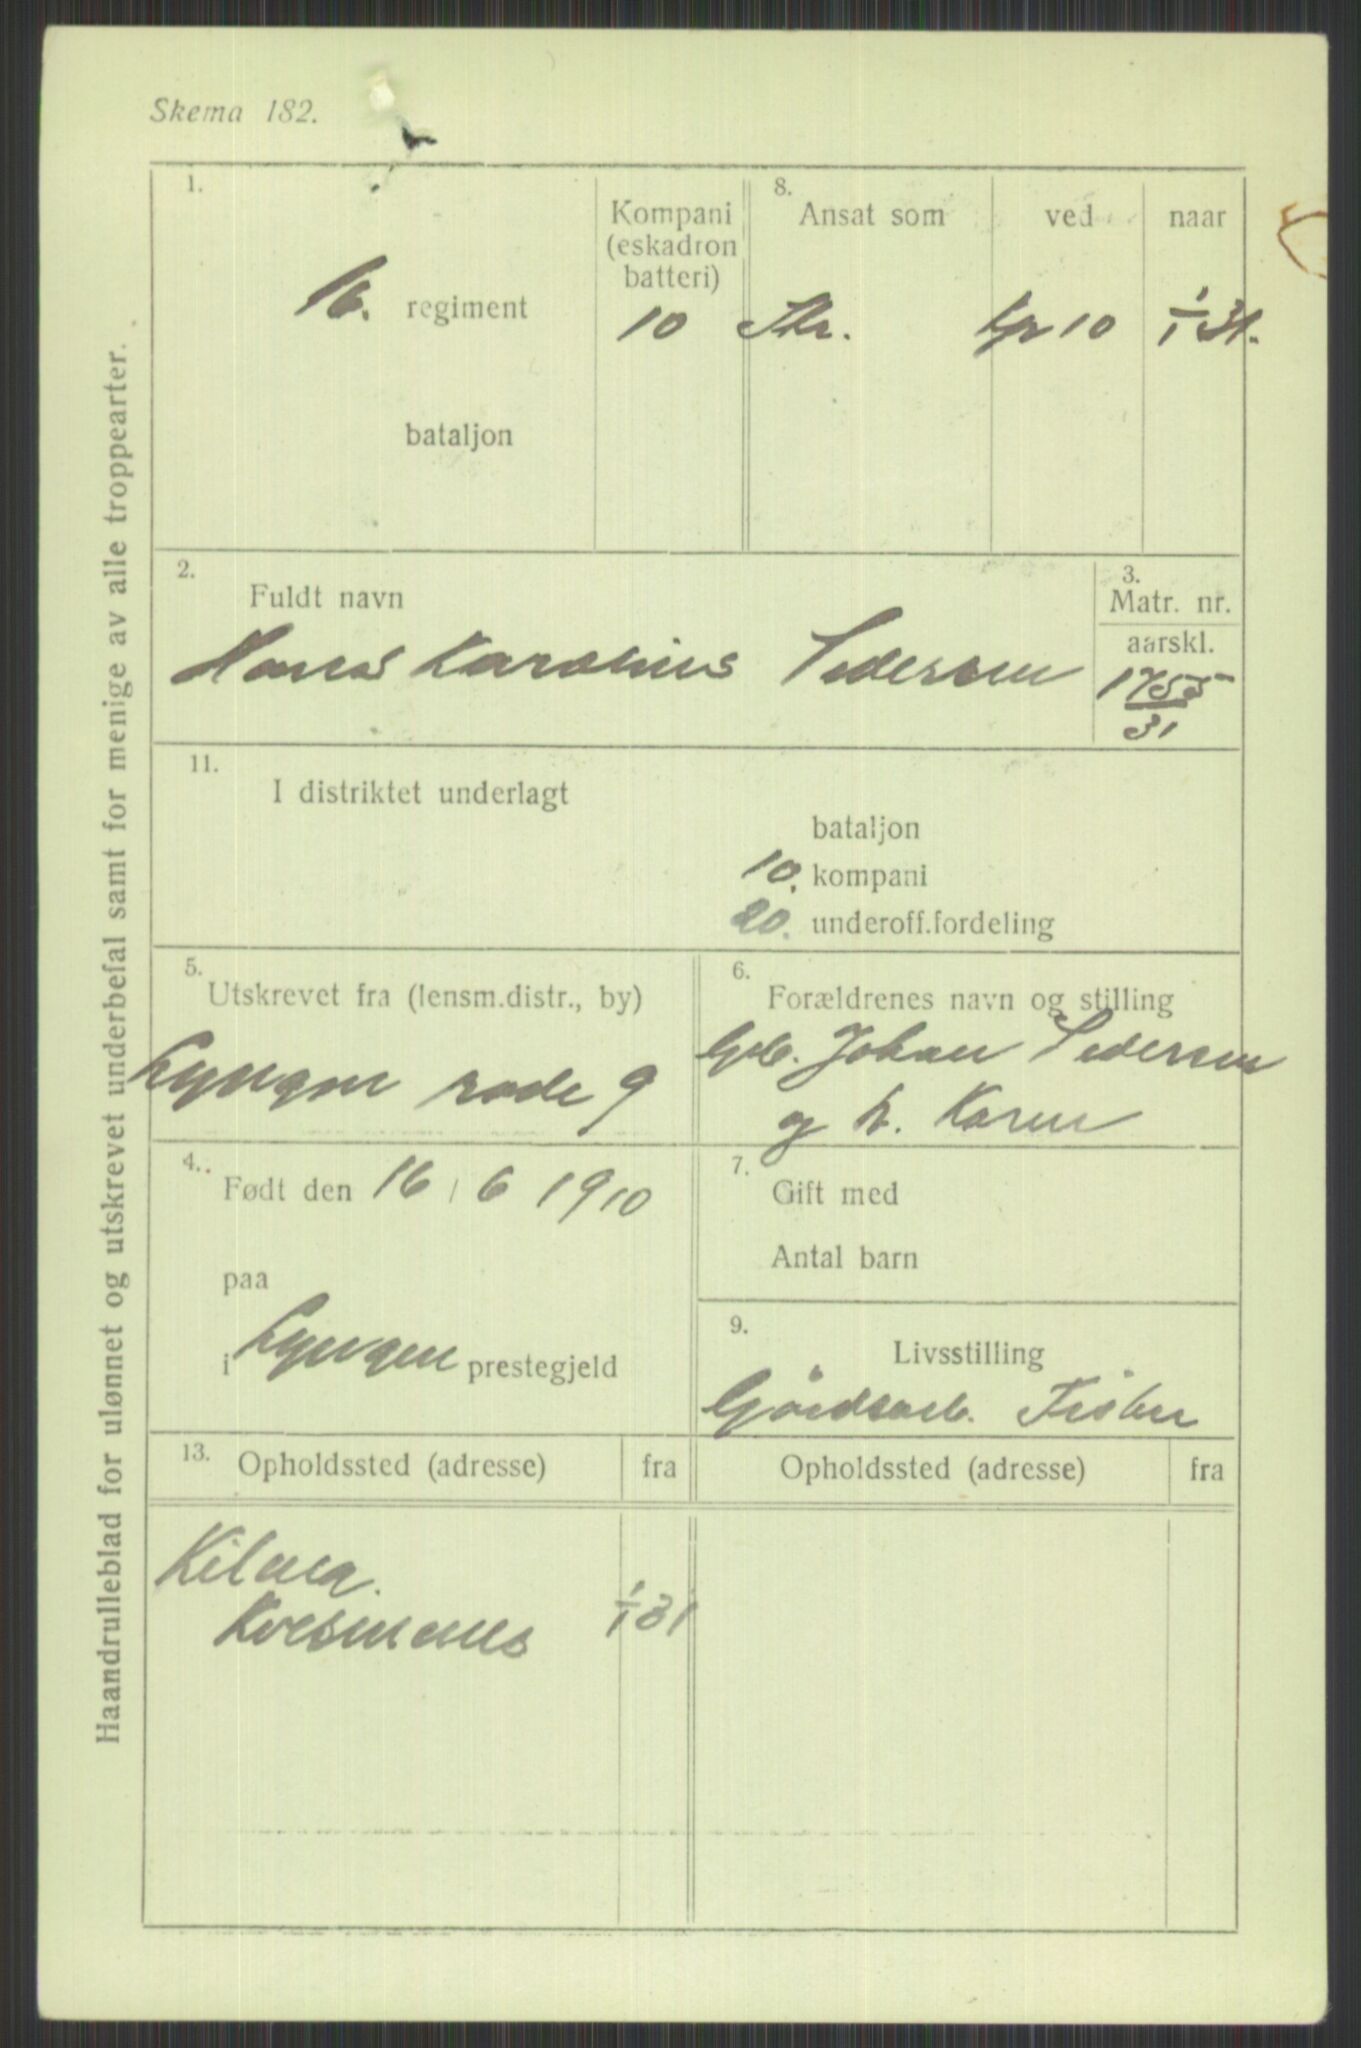 Skema 182.
Haandrulleblad for ulønnet og utskrevet underbefal samt for menige av alle troppearter.
1.
16. regiment
bataljon
Kompani
(eskadron
batteri)
10
8.
Ansat som
ved
naar
kp 10
1/1 31.
2.
Fuldt navn
Hans Karolius Pedersen
3.
Matr. nr.
aarskl.
1755
31
11.
I distriktet underlagt
bataljon
10. kompani
20. underoff.fordeling
5.
Utskrevet fra (lensm.distr., by)
Lyngen rode 9
6.
Forældrenes navn og stilling
Gb. Johan Pedersen
og h. Karen
4.
Født den 16 / 6 1910
paa
i Lyngen prestegjeld
7.
Gift med
Antal barn
9.
Livsstilling
Gårdsarb. Fisker
13.
Opholdssted (adresse)
fra
Opholdssted (adresse)
fra
Kvesmenes
1/1 31